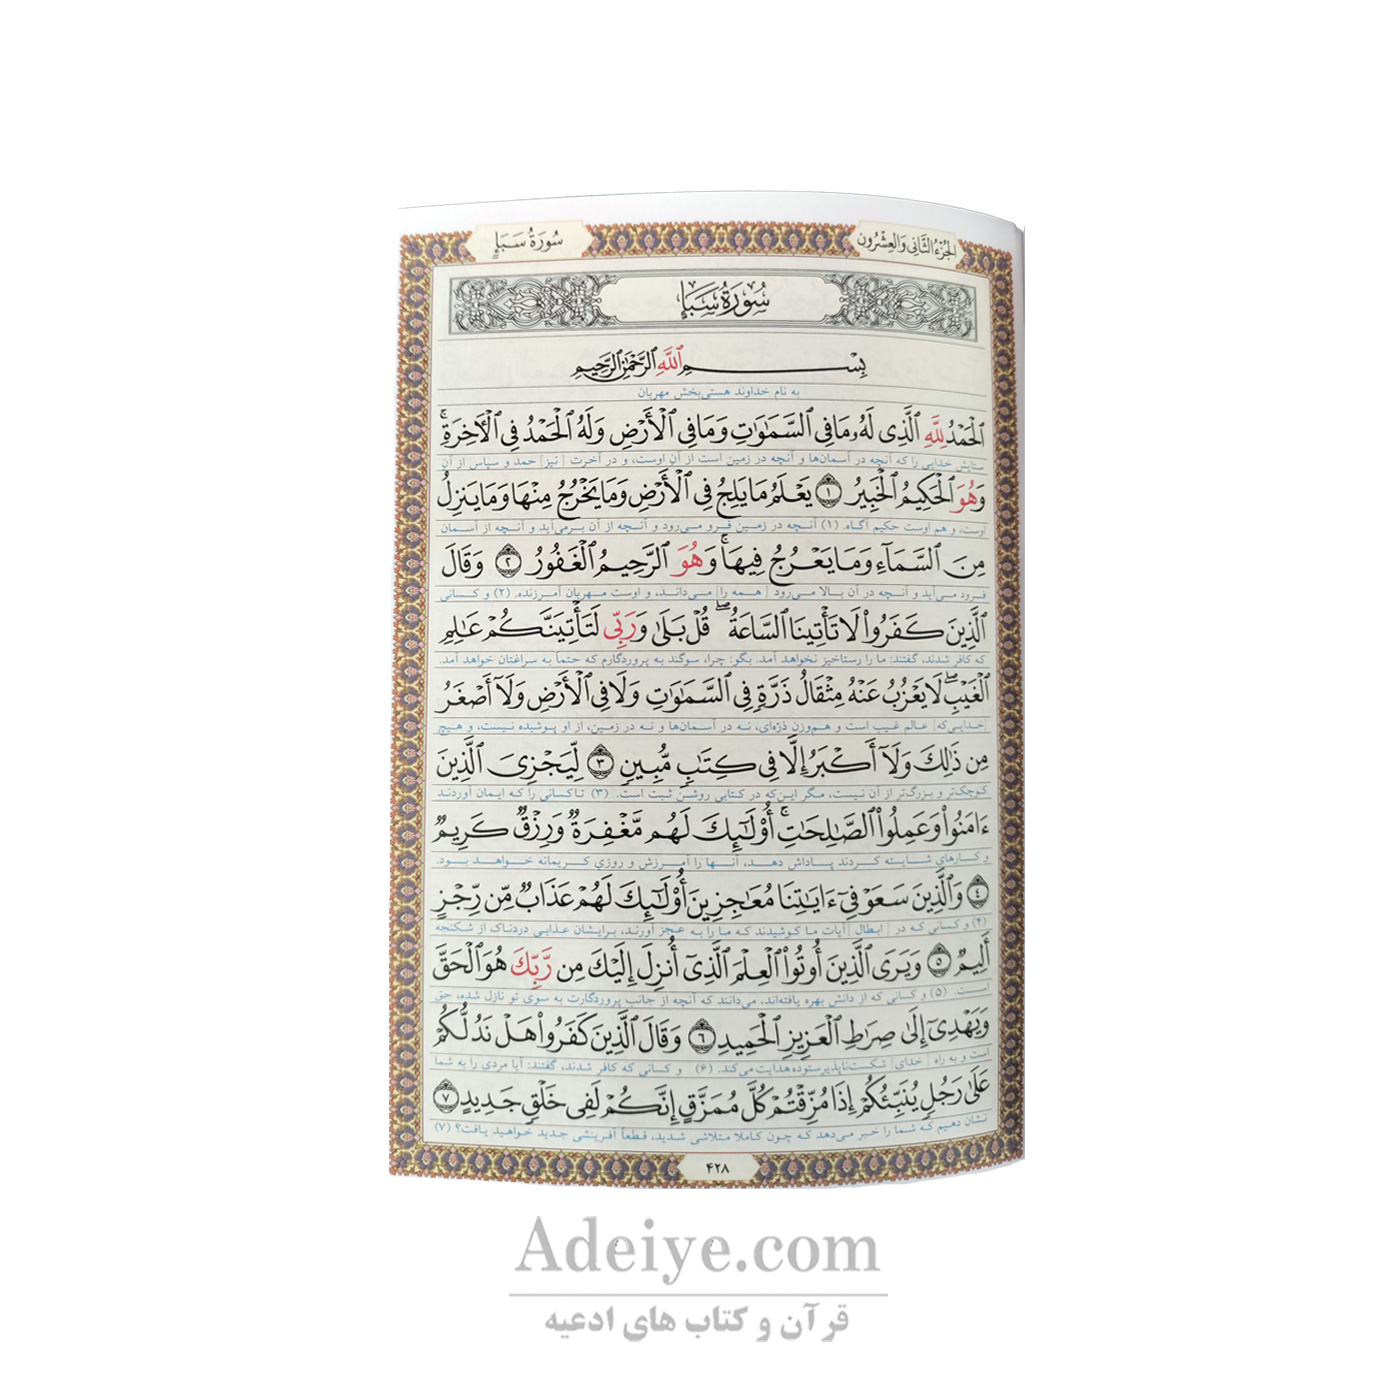 الجُزءُ الثَّانِی وَالعِشرُون
سُورَةُ سَبَإٍ
سُورَةُ سَبَإٍ
بِسْمِ ٱللَّهِ ٱلرَّحْمَٰنِ ٱلرَّحِيمِ
به نام خداوند هستی‌بخش مهربان
ٱلْحَمْدُ لِلَّهِ ٱلَّذِى لَهُۥ مَا فِى ٱلسَّمَٰوَٰتِ وَمَا فِى ٱلْأَرْضِ وَلَهُ ٱلْحَمْدُ فِى ٱلْأَخِرَةِ ۚ
ستایش خدایی را که آنچه در آسمان‌ها و آنچه در زمین است از آن اوست، و در آخرت [نیز] حمد و سپاس از آن
وَهُوَ ٱلْحَكِيمُ ٱلْخَبِيرُ ۝١ يَعْلَمُ مَا يَلِجُ فِى ٱلْأَرْضِ وَمَا يَخْرُجُ مِنْهَا وَمَا يَنزِلُ
اوست، و هم اوست حکیم آگاه. (۱) آنچه در زمین فرو می‌رود و آنچه از آن برمی‌آید و آنچه از آسمان
مِنَ ٱلسَّمَآءِ وَمَا يَعْرُجُ فِيهَا ۚ وَهُوَ ٱلرَّحِيمُ ٱلْغَفُورُ ۝٢ وَقَالَ
فرود می‌آید و آنچه در آن بالا می‌رود [همه را] می‌داند، و اوست مهربان آمرزنده. (۲) و کسانی
ٱلَّذِينَ كَفَرُوا۟ لَا تَأْتِينَا ٱلسَّاعَةُ ۖ قُلْ بَلَىٰ وَرَبِّى لَتَأْتِيَنَّكُمْ عَٰلِمِ
که کافر شدند، گفتند: ما را رستاخیز نخواهد آمد. بگو: چرا، سوگند به پروردگارم که حتماً به سراغتان خواهد آمد.
ٱلْغَيْبِ ۖ لَا يَعْزُبُ عَنْهُ مِثْقَالُ ذَرَّةٍ فِى ٱلسَّمَٰوَٰتِ وَلَا فِى ٱلْأَرْضِ وَلَآ أَصْغَرُ
[خدایی‌که] عالم غیب است و هم‌وزن ذرّه‌ای، نه در آسمان‌ها و نه در زمین، از او پوشیده نیست، و هیچ
مِن ذَٰلِكَ وَلَآ أَكْبَرُ إِلَّا فِى كِتَٰبٍ مُّبِينٍ ۝٣ لِّيَجْزِىَ ٱلَّذِينَ
کوچک‌تر و بزرگ‌تر از آن نیست، مگر این‌که در کتابی روشن ثبت است. (۳) تا کسانی را که ایمان آوردند
ءَامَنُوا۟ وَعَمِلُوا۟ ٱلصَّٰلِحَٰتِ ۚ أُو۟لَٰٓئِكَ لَهُم مَّغْفِرَةٌ وَرِزْقٌ كَرِيمٌ
و کارهای شایسته کردند پاداش دهد، آنها را آمرزش و روزی کریمانه خواهد بود.
۝٤ وَٱلَّذِينَ سَعَوْ فِىٓ ءَايَٰتِنَا مُعَٰجِزِينَ أُو۟لَٰٓئِكَ لَهُمْ عَذَابٌ مِّن رِّجْزٍ
(۴) و کسانی که در [ابطال] آیات ما کوشیدند که ما را به عجز آورند، برایشان عذابی دردناک از شکنجه
أَلِيمٌ ۝٥ وَيَرَى ٱلَّذِينَ أُوتُوا۟ ٱلْعِلْمَ ٱلَّذِىٓ أُنزِلَ إِلَيْكَ مِن رَّبِّكَ هُوَ ٱلْحَقَّ
است. (۵) و کسانی که از دانش بهره یافته‌اند، می‌دانند که آنچه از جانب پروردگارت به سوی تو نازل شده، حق
وَيَهْدِىٓ إِلَىٰ صِرَٰطِ ٱلْعَزِيزِ ٱلْحَمِيدِ ۝٦ وَقَالَ ٱلَّذِينَ كَفَرُوا۟ هَلْ نَدُلُّكُمْ
است و به راه [خدای] شکست‌ناپذیر ستوده هدایت می‌کند. (۶) و کسانی که کافر شدند، گفتند: آیا مردی را به شما
عَلَىٰ رَجُلٍ يُنَبِّئُكُمْ إِذَا مُزِّقْتُمْ كُلَّ مُمَزَّقٍ إِنَّكُمْ لَفِى خَلْقٍ جَدِيدٍ ۝٧
نشان دهیم که شما را خبر می‌دهد که چون کاملا متلاشی شدید، قطعاً آفرینشی جدید خواهید یافت؟ (۷)
۴۲۸
Adeiye.com
قرآن و کتاب های ادعیه